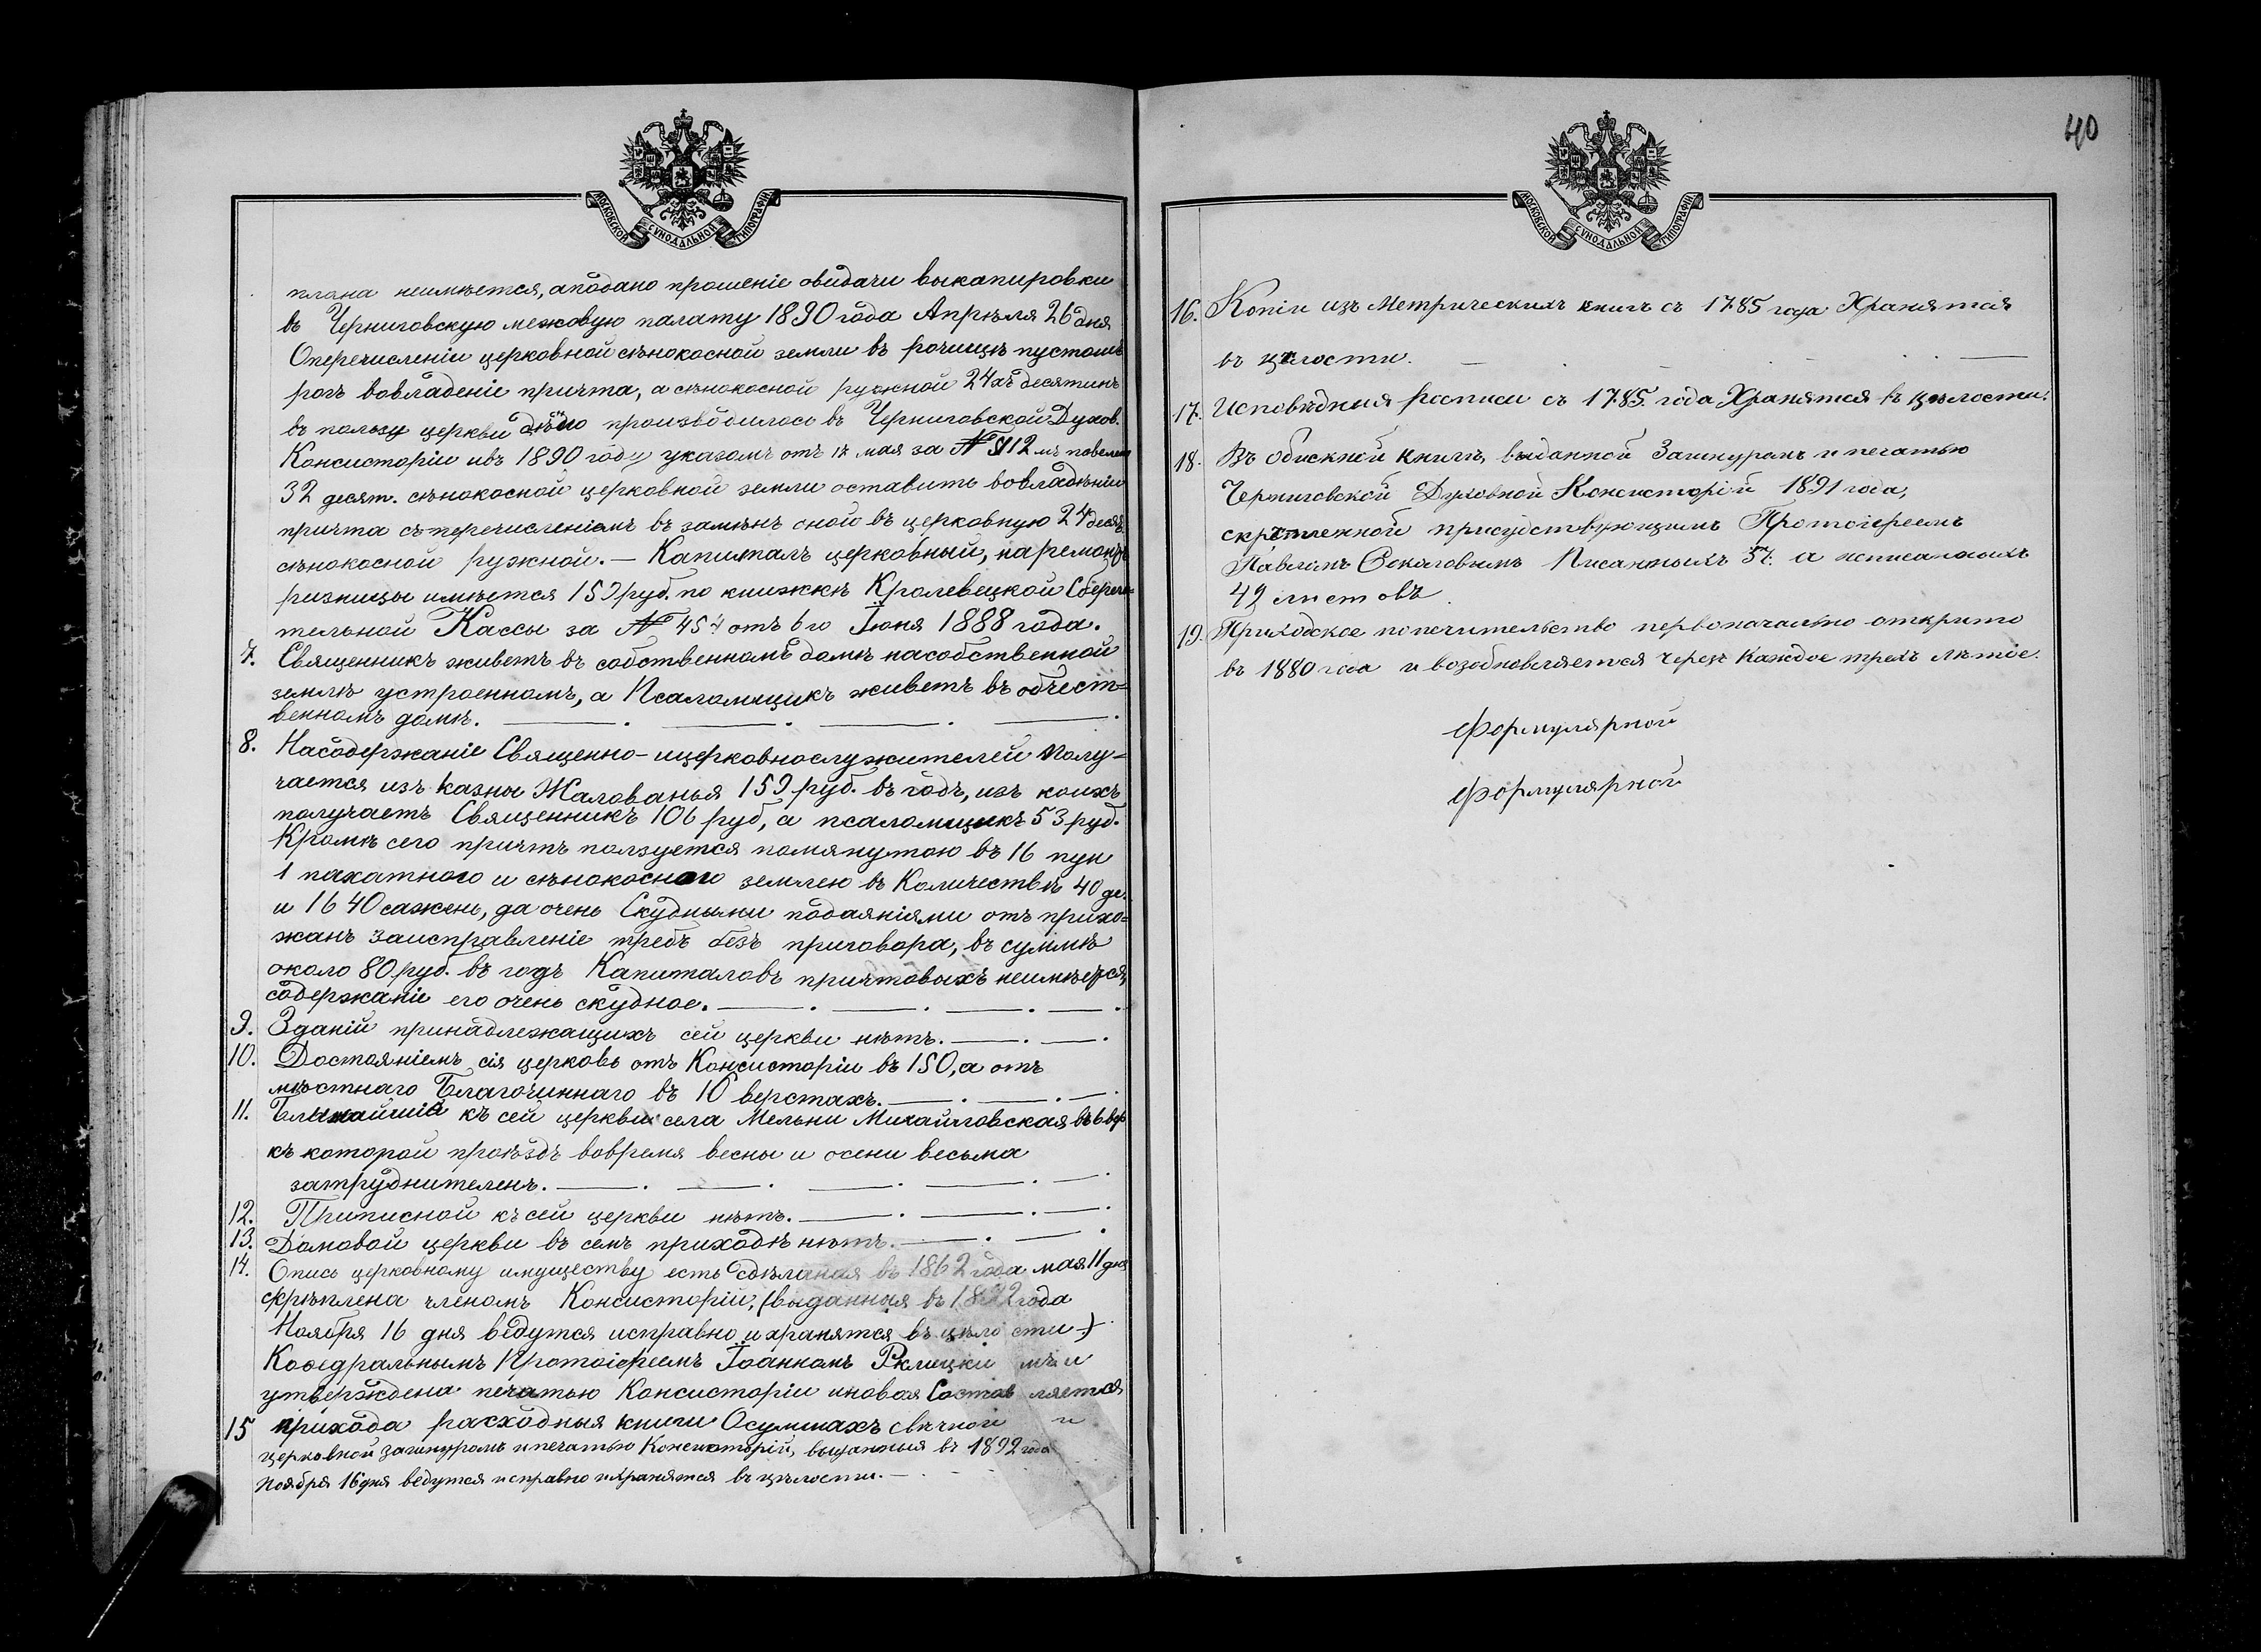 МОСКОВСКОЙ СѴНОДАЛЬНОЙ ТИПОГРАФІИ
плана неимѣется, аподано прошеніе овидачи выкапировки
въ Черниговскую межовую палату 1890 года Апрѣля 26 дня
Оперечисленіи церковной сѣнокосной земли въ рочищѣ пустомъ
рогъ вовладеніе причта, а сѣнокосной ружной 24хъ десятинъ
въ пользу церкви дѣло производилось въ Черниговской Духов.
Консисторіи ивъ 1890 году указомъ отъ 14 мая за № 5112 мъ повелено
32 десят. сѣнокосной церковной земли оставить вовладѣніи
причта съ перечисленіемъ въ замѣнъ оной въ церковную 24 десят.
сѣнокосной ружной. — Капиталъ церковный, на ремонтъ
ризницы имѣется 159 руб. по книжкѣ Кролевецкой Сберега=
тельной Кассы за № 454 отъ 6 го Іюня 1888 года.
7. Священникъ живетъ въ собственномъ домѣ насобственной
землѣ устроенномъ, а Псаломщикъ живетъ въ общест=
венномъ домѣ.
8. Насодержаніе Священно-ицерковнослужителей Полу=
чается изъ казны Жалованья 159 руб. въ годъ, изъ коихъ
получаетъ Священникъ 106 руб, а псаломщикъ 53 руб.
Кромѣ сего причтъ ползуется помянутою въ 16 пун
1 пахатного и сѣнокосного землею въ Количествѣ 40 де.
и 1640 сажень, да очень Скудными подаяніями отъ прихо=
жанъ заисправленіе требъ безъ приговора, въ суммѣ
около 80 руб. въ годъ Капиталовъ причтовыхъ неимѣется,
содержаніе его очень скудное.
9. Зданій принадлежащихъ сей церкви нѣтъ.
10. Достояніемъ сія церковь отъ Консисторіи въ 150, а отъ
мѣстнаго Благочиннаго въ 10 верстахъ.
11. Ближайшія къ сей церкви села Мельни Михайловская въ 6 вер
къ которой проѣздъ вовремя весны и осени весьма
затруднителенъ.
12. Приписной къ сей церкви нѣтъ.
13. Домовой церкви въ семъ приходѣ нѣтъ.
14. Опись церковному имуществу есть сдѣланая въ 1862 года мая 11 дня
скрѣплена членомъ Консисторіи, (выданная въ 1892 года
Ноября 16 дня ведутся исправно и хранятся въ цѣлости)
Кафедральнымъ Протоіереемъ Іоанномъ Рклицкимъ и
утверждена печатью Консисторіи иновая Составляется
15 прихода расходныя книги Осуммахъ свѣчной и
церковной зашнуромъ ипечатью Консисторіи, выданныя въ 1892 года
Ноября 16 дня ведутся исправно ихранятся въ цѣлости.
40
МОСКОВСКОЙ СѴНОДАЛЬНОЙ ТИПОГРАФІИ
16. Копіи изъ Метрическихъ книгъ съ 1785 года Хранятся
въ цѣлости.
17. Исповѣдныя росписи съ 1785. года Хранятся въ цѣлости.
18. Въ Обискной книгѣ, выданной Зашнуромъ и печатью
Черниговской Духовной Консисторіи 1891 года,
скрѣпленной присудствующимъ Протоіереемъ
Павломъ Писанныхъ 57. а неписанныхъ
42 листовъ.
19. Приходское попечительство первоначально открыто
въ 1880 года и возобновляется черезъ каждое трехъ лѣтіе.
Формулярной
Формулярной